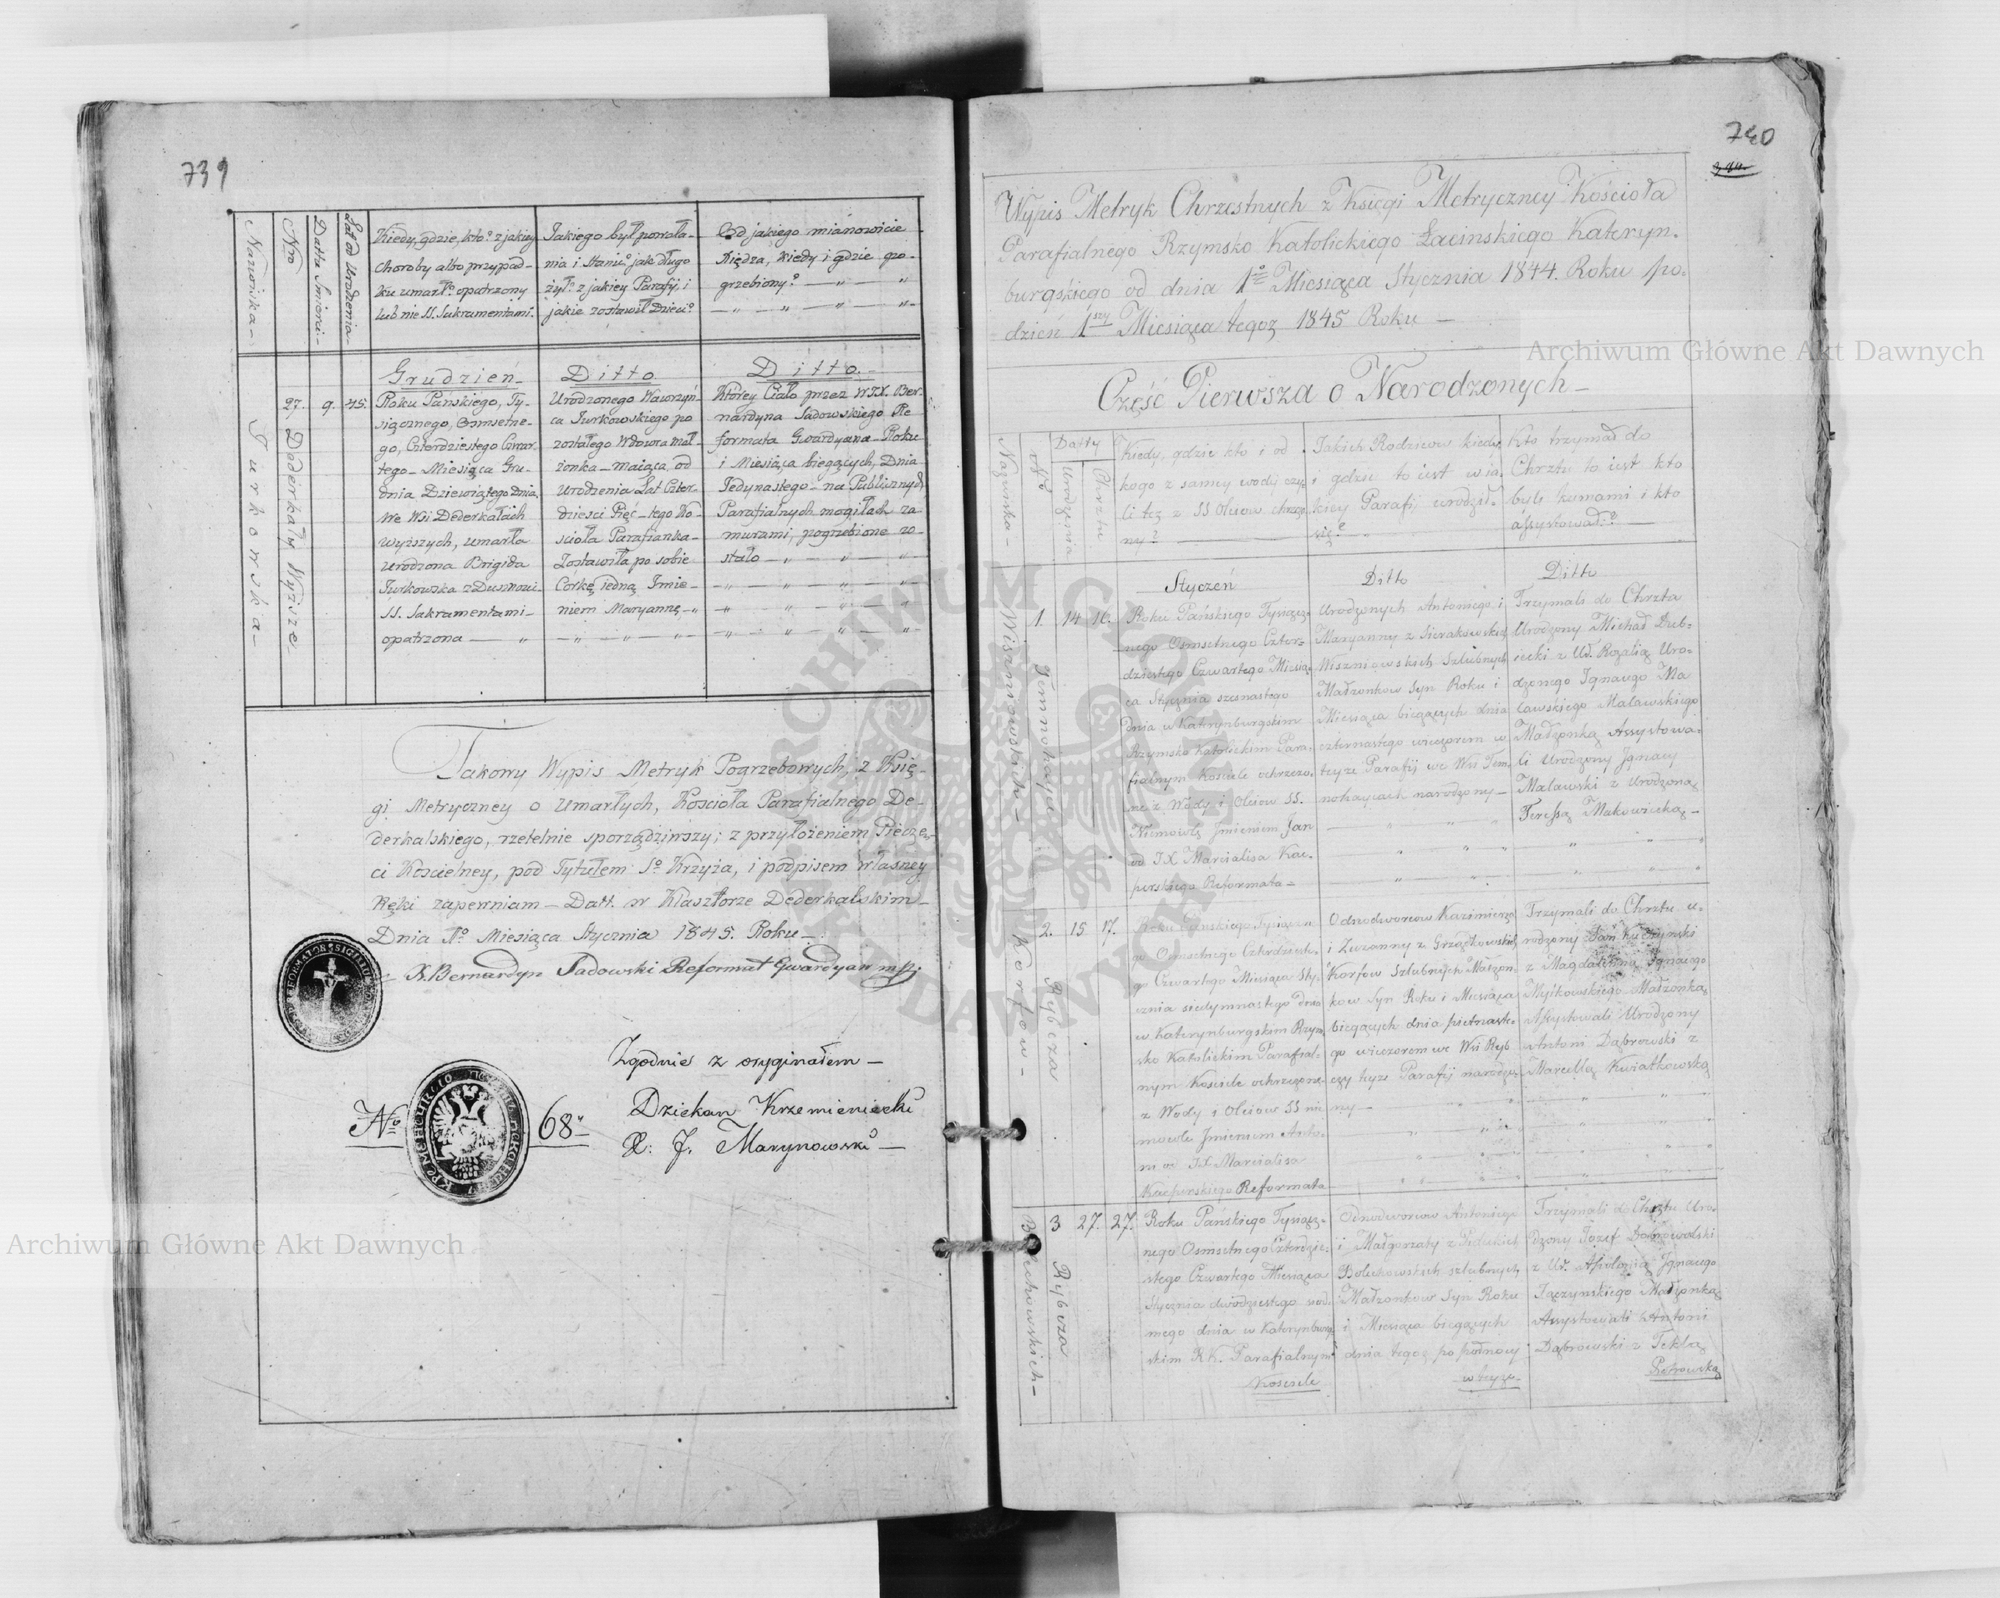 739
Nazwiska.
Nro
Datta Śmierci.
Lat od Urodzenia.
Kiedy, gdzie, kto? z jakiey
choroby albo przypad-
ku umarł? opatrzony
lub nie SS. Sakramentami.
Jakiego był powoła-
nia i stanu? jak długo
żył? z jakiey Parafij i
jakie zostawił Dzieci?
Od jakiego mianowicie
Xiędza, kiedy i gdzie po-
grzebiony?
Grudzień
Ditto
Ditto.
Turkowska
27.
Dederkały Wyższe
9.
45.
Roku Pańskiego, Ty-
siącznego, Osmsetne-
go, Czterdziestego Czwar-
tego Miesiąca Gru-
dnia Dziewiątego Dnia,
We Wsi Dederkałach
Wyższych, umarła
Urodzona Brigida
Turkowska
SS. Sakramentami
opatrzona
Urodzonego Wawrzyń-
ca Turkowskiego po
zostałego Wdowca mał-
żonka maiąca od
Urodzenia Lat Czter-
dzieści Pięć tego Ko-
scioła Parafianka
Zostawiła po sobie
Córkę iedną Imie-
niem Maryannę
Którey Ciało przez WJX. Ber-
nardyna Sadowskiego Re-
formata Gwardyana Roku
i Miesiąca bieżących, Dnia
Jedynastego na Publicznych
Parafialnych mogiłach za
murami, pogrzebione zo-
stało
Takowy Wypis Metryk Pogrzebowych, z Księ-
gi Metryczney o Umarłych, Kościoła Parafialnego De-
derkalskiego, rzetelnie sporządziwszy; z przyłożeniem Pieczę-
ci Koscielney, pod Tytułem So Krzyża, i podpisem własney
Ręki zapewniam Datt. w Klasztorze Dederkalskim
Dnia 1o Miesiąca Stycznia 1845. Roku
X. Bernardyn Sadowski Reformat Gwardyan mp.
Zgodnie z oryginałem
Dziekan Krzemieniecki
X: J. Marynowski
No 68
740
Wypis Metryk Chrzestnych z Księgi Metryczney Kościoła
Parafialnego Rzymsko Katolickiego Łacinskiego Kateryn-
burgskiego od dnia 1o Miesiąca Stycznia 1844. Roku po-
dzień 1szy Miesiąca tegoż 1845 Roku
Część Pierwsza o Narodzonych
Nazwiska
No
Datty
Urodzenia
Chrztu
Kiedy, gdzie kto i od
kogo z samey wody czy-
li też z SS Olejow chrzczo-
ny?
Jakich Rodzicow kiedy
i gdzie to iest w ia-
kiey Parafij urodził
się?
Kto trzymał do
Chrztu to iest kto
byli kumami i kto
assystował?
Styczeń
Ditto
Ditto
Wiszniowskich
1.
14
16.
Roku Pańskiego Tysiącz-
nego Osmsetnego Czter-
dziestego Czwartego Miesią-
ca Stycznia szesnastego
dnia w Katerynburgskim
Rzymsko Katolickim Para-
fialnym kosciele ochrzczo-
ne z Wody i Oleiow SS.
Niemowlę Jmieniem Jan
od JX Marcialisa Kac-
perskiego Reformata
Urodzonych Antoniego i
Maryanny z Sierakowskich
Wiszniowskich Szlubnych
Małżonkow Syn Roku i
Miesiąca bieżących dnia
czternastego wieczorem w
teyże Parafij we Wsi Tem-
nohaycach narodzony
Trzymali do Chrztu
Urodzony Michał Dub-
iecki z Ur. Rozalią Uro-
dzonego Ignacego Ma
lawskiego Malawskiego
Małżonką Assystowa-
li Urodzony Jgnacy
Malawski z Urodzoną
Teressą Makowiecką
Korfow
2.
Rybcza
15
17.
Roku Pańskiego Tysiącz-
Osmsetnego Czterdzieste-
go Czwartego Miesiąca Sty-
cznia siedymnastego dnia
w Katerynburgskim Rzym-
sko Katolickim Parafial-
nym Kosciele ochrzczone
z Wody i Oleiow SS nie
mowle Jmieniem Anto-
ni od JX Marcialisa
Kacperskiego Reformata
Odnodworcow Kazimierza
i Zuzanny z Grządkowskich
Korfow Szlubnych Małżon-
kow Syn Roku i Miesiąca
bieżących dnia pietnaste-
go wieczorem we Wsi Ryb
czy teyże Parafij narodzo-
ny
Trzymali do Chrztu u-
rodzony Jan
z Magdaleną Ignacego
Małżonką
Assystowali Urodzony
Antoni Dąbrowski z
Marcellą Kwiatkowską
3
Rybcza
27.
27.
Roku Pańskiego Tysiącz-
nego Osmsetnego Czterdzie-
stego Czwartego Miesiąca
Stycznia dwódziestego siod-
mego dnia w Katerynburg-
skim RK. Parafialnym
kosciele
Odnodworcow Antoniego
i Małgorzaty z
szlubnych
Małżonkow Syn Roku
i Miesiąca bieżących
dnia tegoż po północy
w teyże
Trzymali do Chrztu Uro-
dzony Jozef
z Ur. Apolonią Jgnacego
Małżonką
Assystowali Antoni
Dąbrowski z Teklą
Piotrowską
Archiwum Główne Akt Dawnych
Archiwum Główne Akt Dawnych
ARCHIWUM GŁÓWNE AKT DAWNYCH